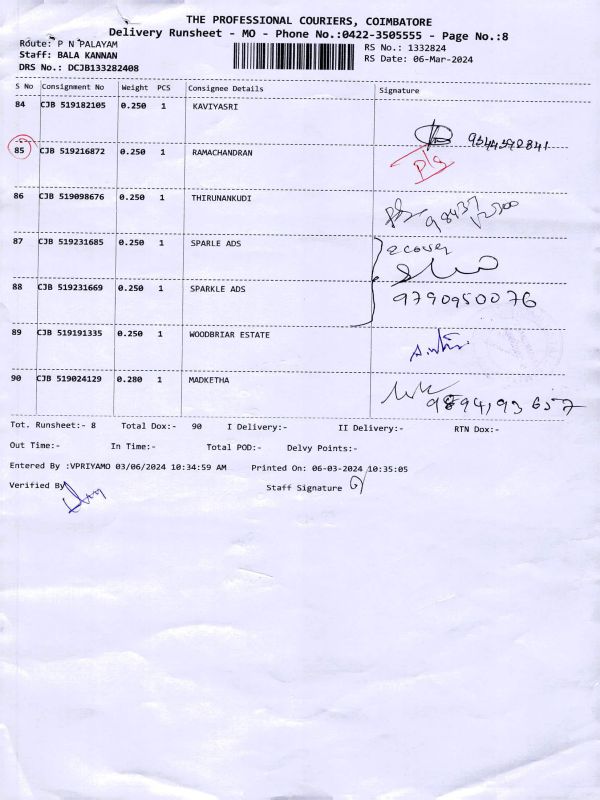 THE PROFESSIONAL COURIERS, COIMBATORE
Delivery Runsheet - MO - Phone No.:0422-3505555 - Page No.:8
Route: P N PALAYAM
RS No.: 1332824
Staff: BALA KANNAN
RS Date: 06-Mar-2024
DRS No.: DCJB133282408
S No Consignment No Weight PCS Consignee Details Signature
84 CJB 519182105 0.250 1 KAVIYASRI
85 CJB 519216872 0.250 1 RAMACHANDRAN
86 CJB 519098676 0.250 1 THIRUNANKUDI
87 CJB 519231685 0.250 1 SPARLE ADS
2 cover
88 CJB 519231669 0.250 1 SPARKLE ADS
9790950076
89 CJB 519191335 0.250 1 WOODBRIAR ESTATE
90 CJB 519024129 0.280 1 MADKETHA
Tot. Runsheet:- 8 Total Dox:- 90 I Delivery:- II Delivery:- RTN Dox:-
Out Time:- In Time:- Total POD:- Delvy Points:-
Entered By :VPRIYAMO 03/06/2024 10:34:59 AM Printed On: 06-03-2024 10:35:05
Verified By
Staff Signature